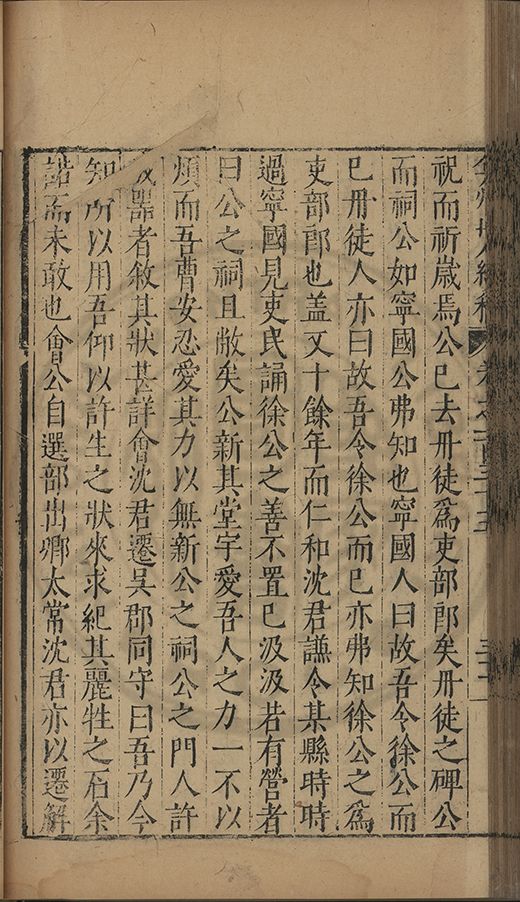 弇州山人續稿 卷之
祝而祈歲焉公已去丹徒爲吏部郎矣丹徒之碑公
而祠公如寧國公弗知也寧國人曰故吾令徐公而
已丹徒人亦曰故吾令徐公而已亦弗知徐公之爲
吏部郎也盖又十餘年而仁和沈君謙令其縣時時
過寧國見吏民誦徐公之善不置已汲汲若有營者
曰公之祠且敝矣公新其堂宇愛吾人之力一不以
煩而吾曹安忍愛其力以無新公之祠公之門人許
者敘其狀甚詳會沈君遷吳郡同守曰吾乃今
知所以用吾仰以許生之狀來求紀其麗牲之石余
諾而未敢也會公自選部出卿太常沈君亦以遷解